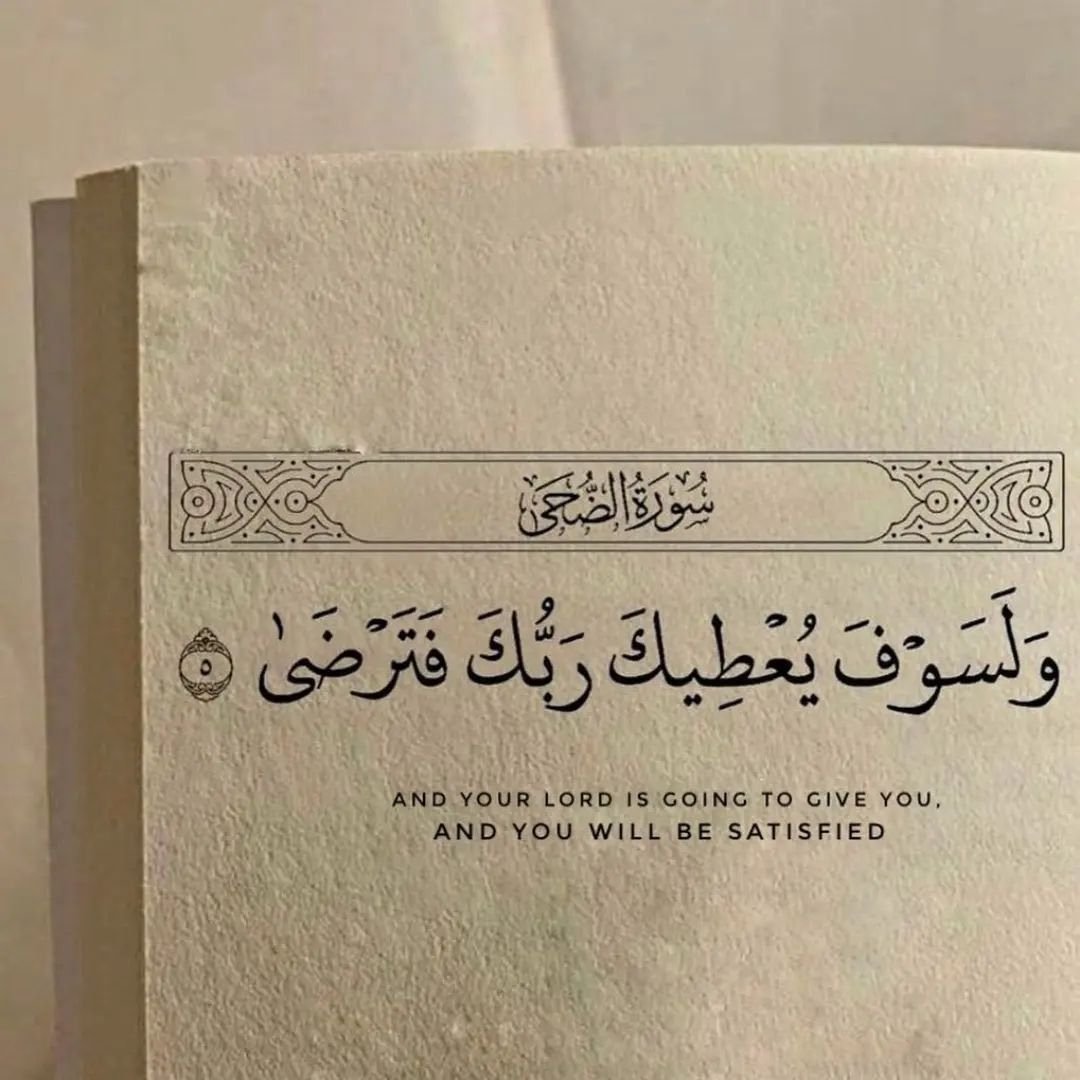 سُورَةُ الضُّحَىٰ
وَلَسَوْفَ يُعْطِيكَ رَبُّكَ فَتَرْضَىٰ ٥
AND YOUR LORD IS GOING TO GIVE YOU,
AND YOU WILL BE SATISFIED